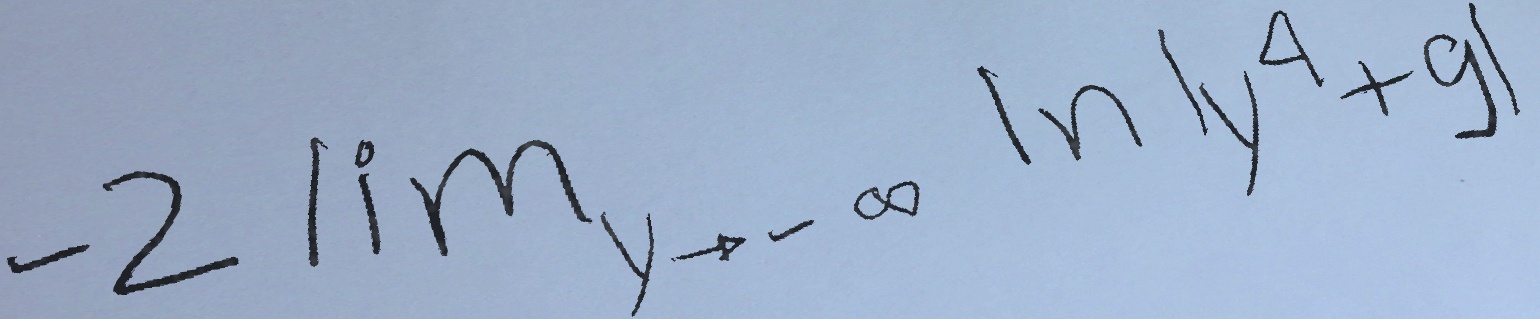 -2 lim y→-∞ ln|y^4+9|